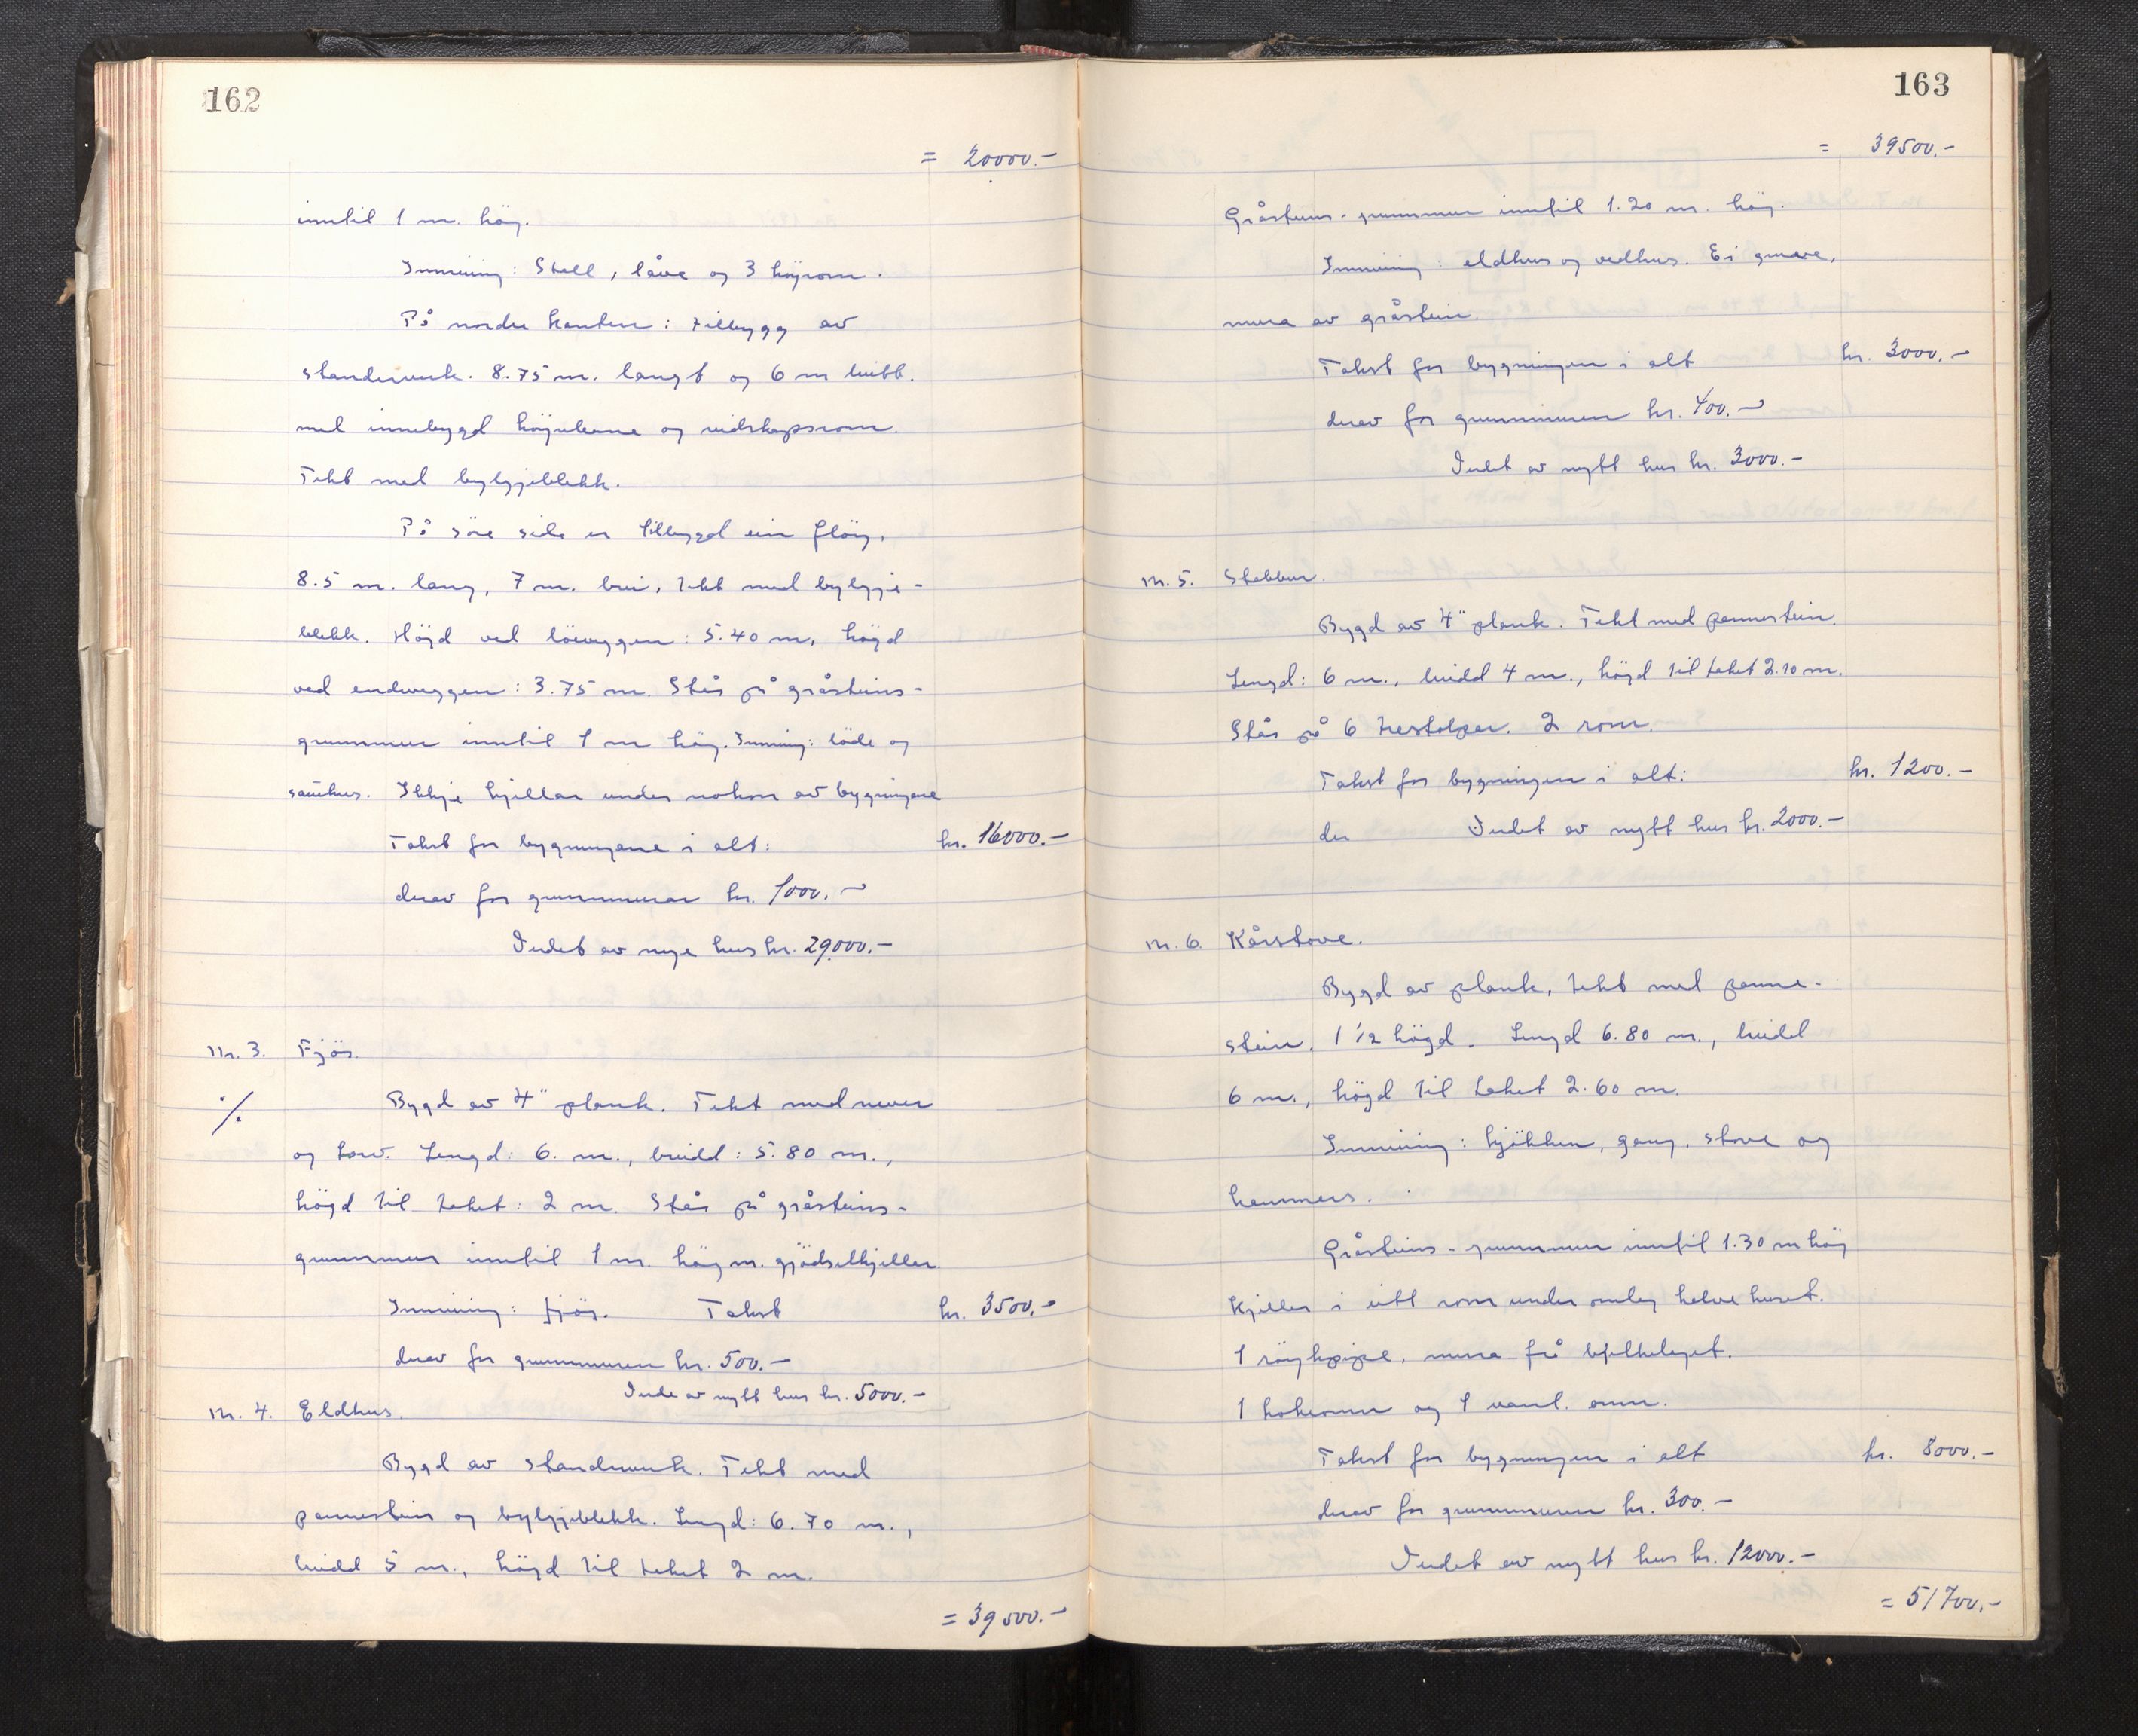 162
= 20000.-
inntil 1 m. høg.
Innreiing: Stall, låve og 3 høyrom.
På nordre kanten: tilbygg av
standerverk. 8.75 m. langt og 6 m breitt.
med innebygd høykløve og reidskapsrom.
Tekt med bylgjeblekk.
På søre side er tilbygd ein fløy,
8.5 m. lang, 7 m. brei, tekt med bylgje-
blekk. Høgd ved løeveggen: 5.40 m, høgd
ved endeveggen: 3.75 m. Står på gråsteins-
grunnmur inntil 1 m høg. Innreiing: løde og
sauehus. Ikkje kjellar under nokon av bygningane
Takst for bygningane i alt: kr. 16000.-
derav for grunnmurar kr. 1000.-
Verdet av nye hus kr. 29.000.-
nr. 3. Fjøs.
./. Bygd av 4" plank. Tekt med never
og torv. Lengd: 6. m., breidd: 5.80 m.,
høgd til taket: 2 m. Står på gråsteins-
grunnmur inntil 1 m. høg m. gjødselkjellar.
Innreiing: fjøs. Takst kr. 3500.-
derav for grunnmuren kr. 500.-
Verde av nytt hus kr. 5000.-
nr. 4. Eldhus.
Bygd av standerverk. Tekt med
pannestein og bylgjeblekk. Lengd: 6.70 m.,
breidd 5 m., høgd til taket 2 m.
= 39500.-
163
= 39500.-
Gråsteins-grunnmur inntil 1.20 m. høg.
Innreiing: eldhus og vedhus. Ei gruve,
mura av gråstein.
Takst for bygningen i alt kr. 3000.-
derav for grunnmuren kr. 400.-
Verdet av nytt hus kr. 3000.-
nr. 5. Stabbur.
Bygd av 4" plank. Tekt med pannestein.
Lengd: 6 m., breidd 4 m., høgd til taket 2.10 m.
Står på 6 trestolper. 2 rom.
Takst for bygningen i alt: kr. 1200.-
der Verdet av nytt hus kr. 2000.-
nr. 6. Kårstove.
Bygd av plank, tekt med panne-
stein. 1 1/2 høgd. Lengd 6.80 m., breidd
6 m., høgd til taket 2.60 m.
Innreiing: kjøkken, gang, stove og
kammers.
Gråsteins-grunnmur inntil 1.30 m høg
Kjeller i eitt rom under omlag halve huset.
1 røykpipe, mura frå bjelkelaget.
1 kokeomn og 1 vanl. omn.
Takst for bygningen i alt kr. 8000.-
derav for grunnmuren kr. 300.-
Verdet av nytt hus kr. 12000.-
= 51700.-